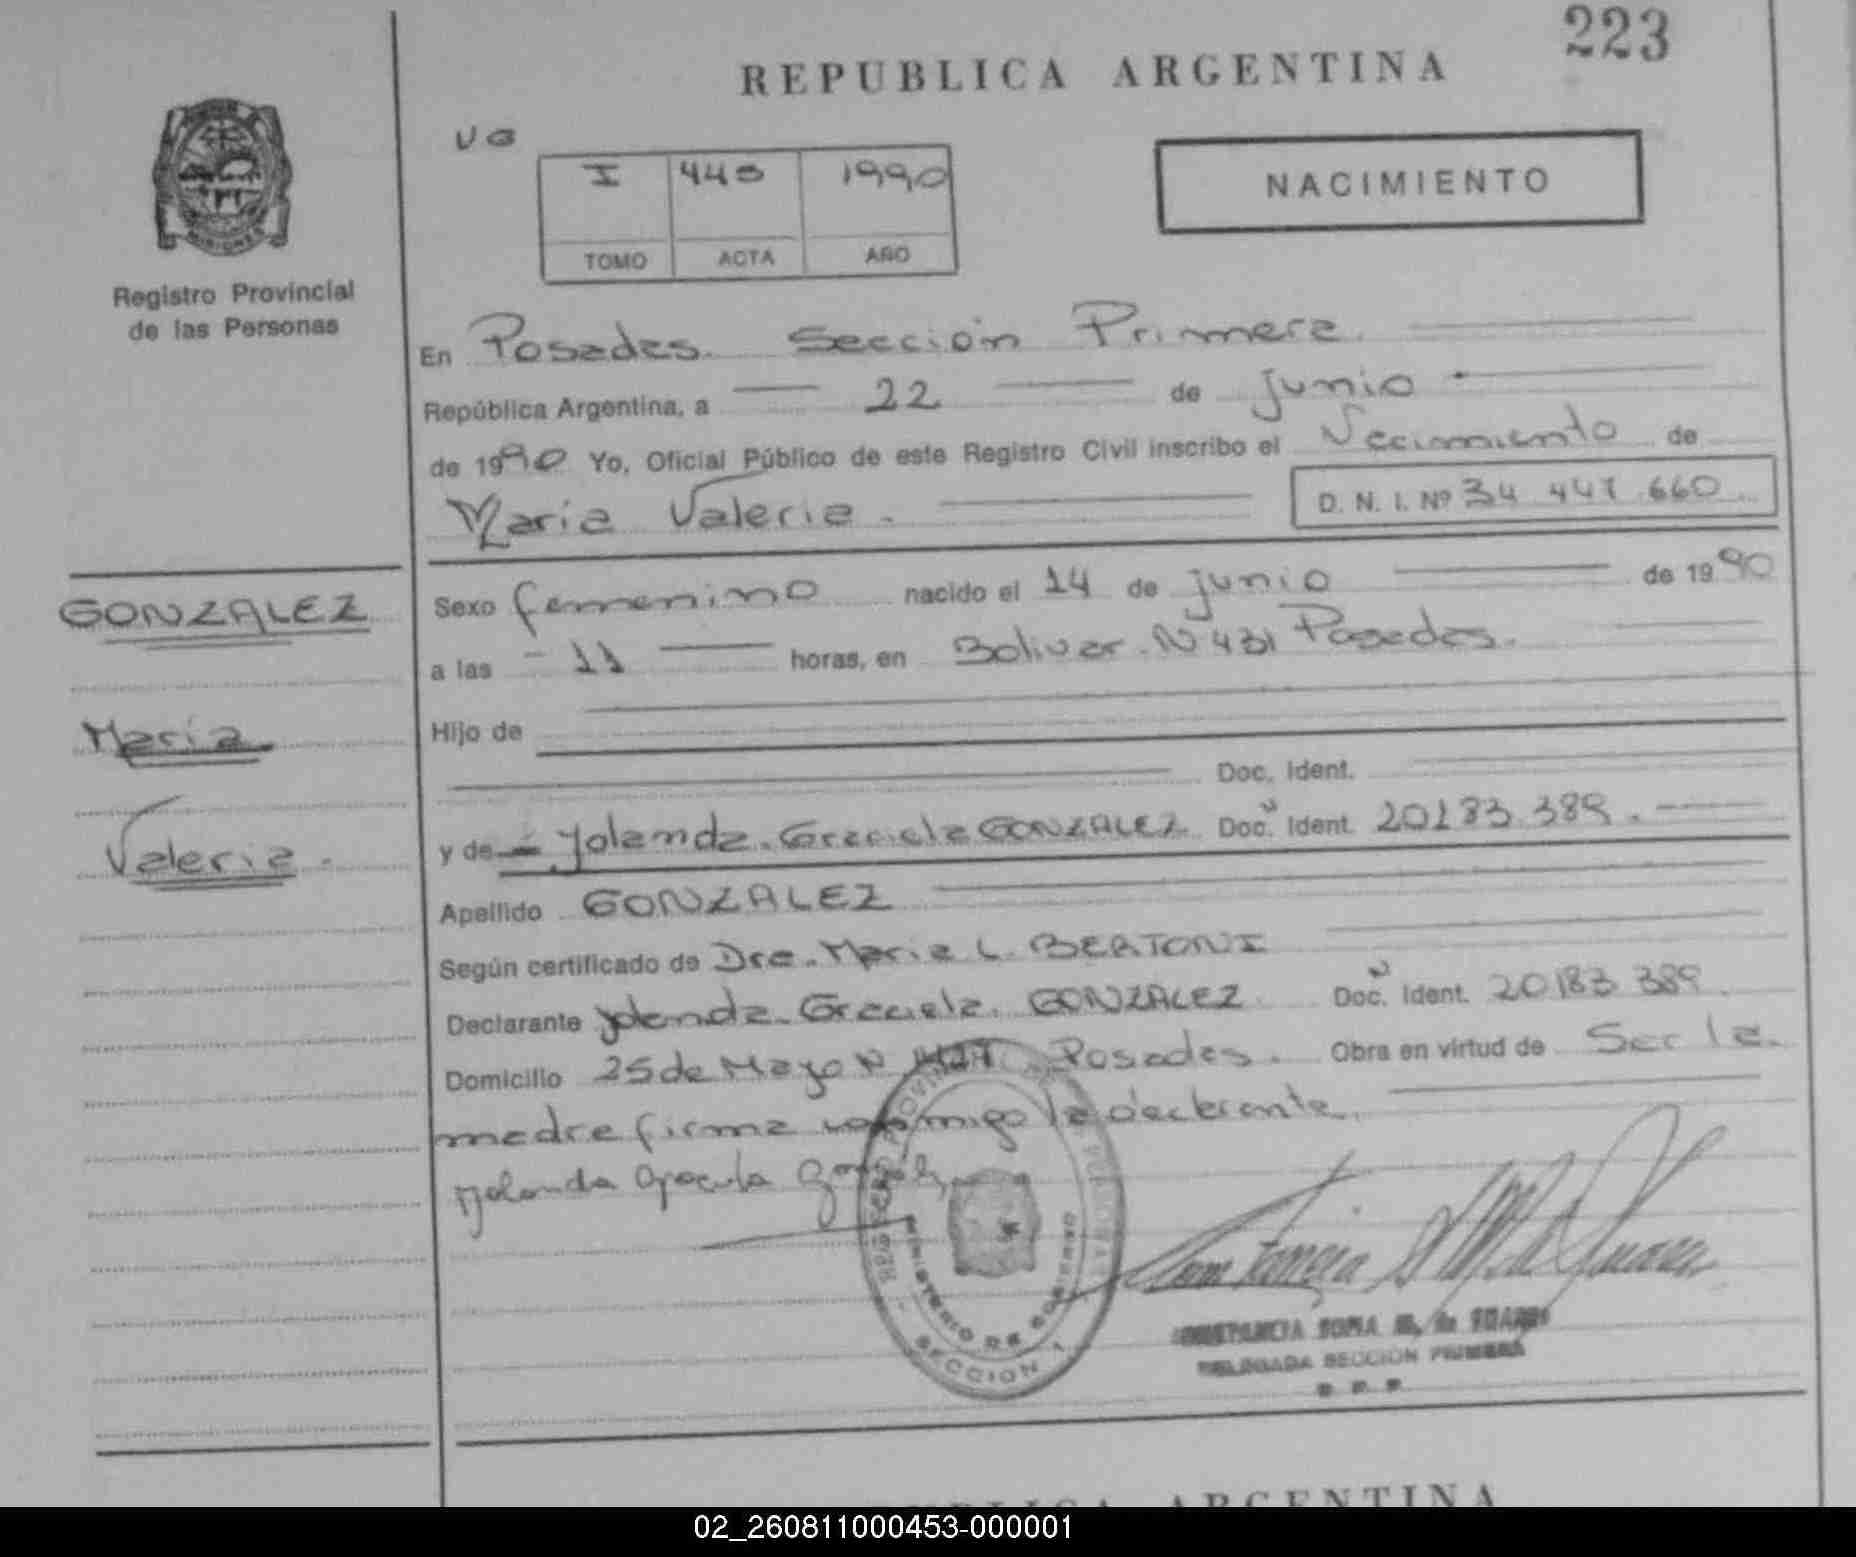 223
REPUBLICA ARGENTINA
VG
I 445 1990
TOMO ACTA AÑO
NACIMIENTO
MISIONES
Registro Provincial
de las Personas
En Posadas. Sección Primera.
República Argentina, a 22 de junio
de 1990 Yo, Oficial Público de este Registro Civil inscribo el Nacimiento de
Maria Valeria. D. N. I. Nº 34 447 660
GONZALEZ
Maria
Valeria.
Sexo femenino nacido el 14 de junio de 1990
a las 11 horas, en Bolivar N 431 Posadas.
Hijo de
Doc. Ident.
y de Yolanda Graciela GONZALEZ Doc. Ident. 20183.389.
Apellido GONZALEZ
Según certificado de Dra. Maria L. BERTONI
Declarante Yolanda Graciela GONZALEZ Doc. Ident. 20183 389.
Domicilio 25 de Mayo N Posadas. Obra en virtud de Ser la
madre firma conmigo la declarante.
Yolanda Graciela
MINISTERIO DE GOBIERNO
SECCION 1
CONSTANCIA SOFIA M. de SUAREZ
DELEGADA SECCION PRIMERA
R. P. P.
REPUBLICA ARGENTINA
02_260811000453-000001